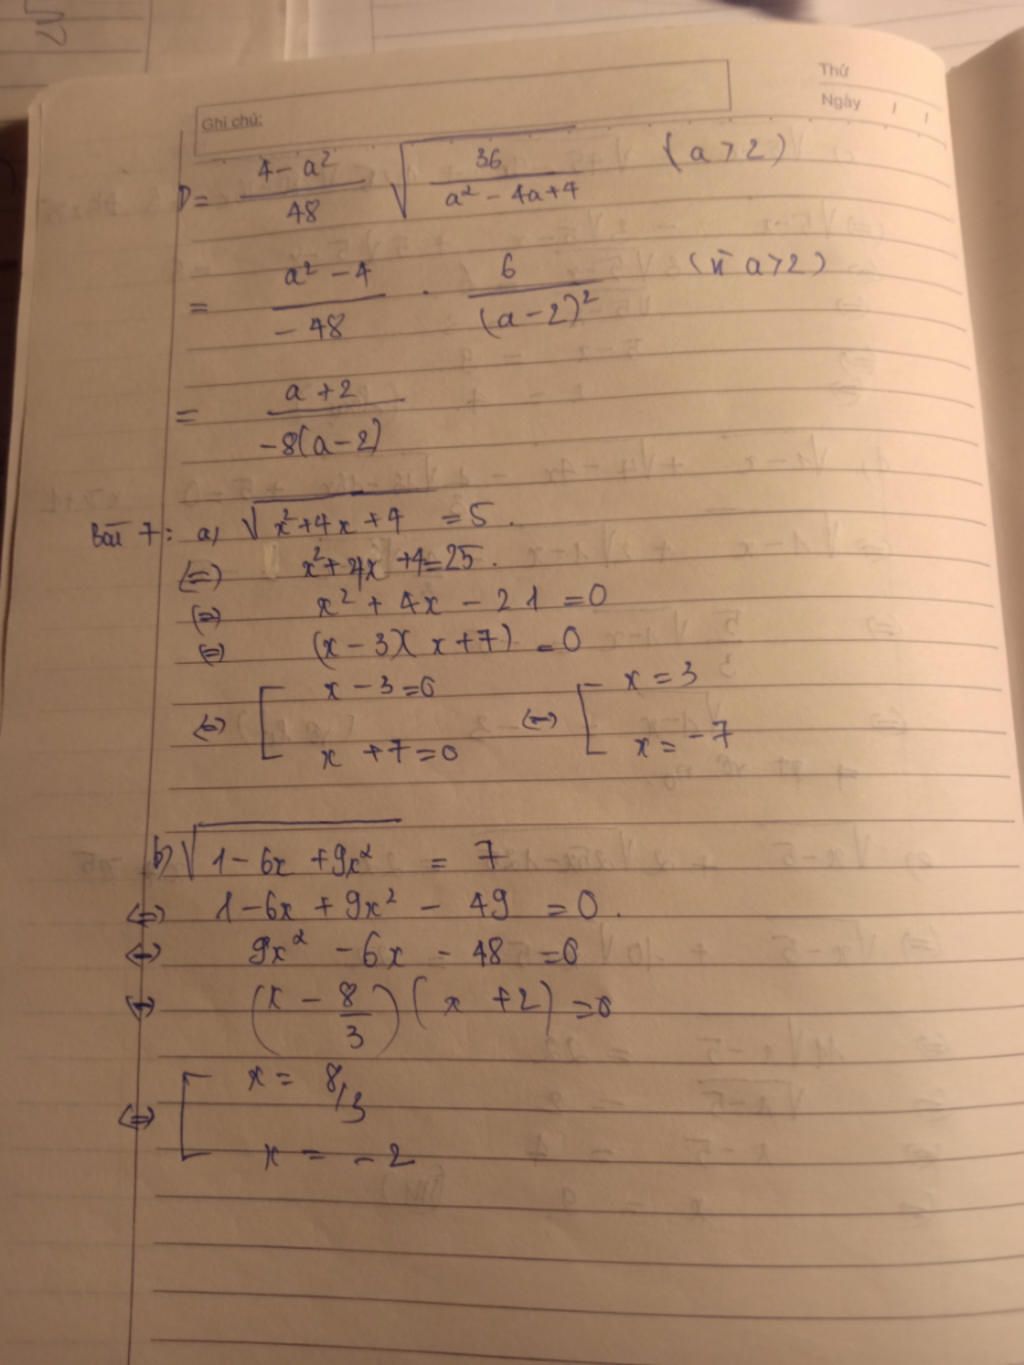 Thứ
Ngày / /
Ghi chú:
D = (4 - a²)/48 √(36/(a² - 4a + 4)) (a > 2)
= (a² - 4)/(-48) . 6/(a - 2)² (vì a > 2)
= (a + 2)/(-8(a - 2))
Bài 7: a, √(x² + 4x + 4) = 5.
(=) x² + 4x + 4 = 25.
(=) x² + 4x - 21 = 0
(=) (x - 3)(x + 7) = 0
(=) [ x - 3 = 0 (=) [ x = 3
x + 7 = 0 x = -7
b) √(1 - 6x + 9x²) = 7
(=) 1 - 6x + 9x² - 49 = 0.
(=) 9x² - 6x - 48 = 0
(=) (x - 8/3)(x + 2) = 0
(=) [ x = 8/3
x = -2